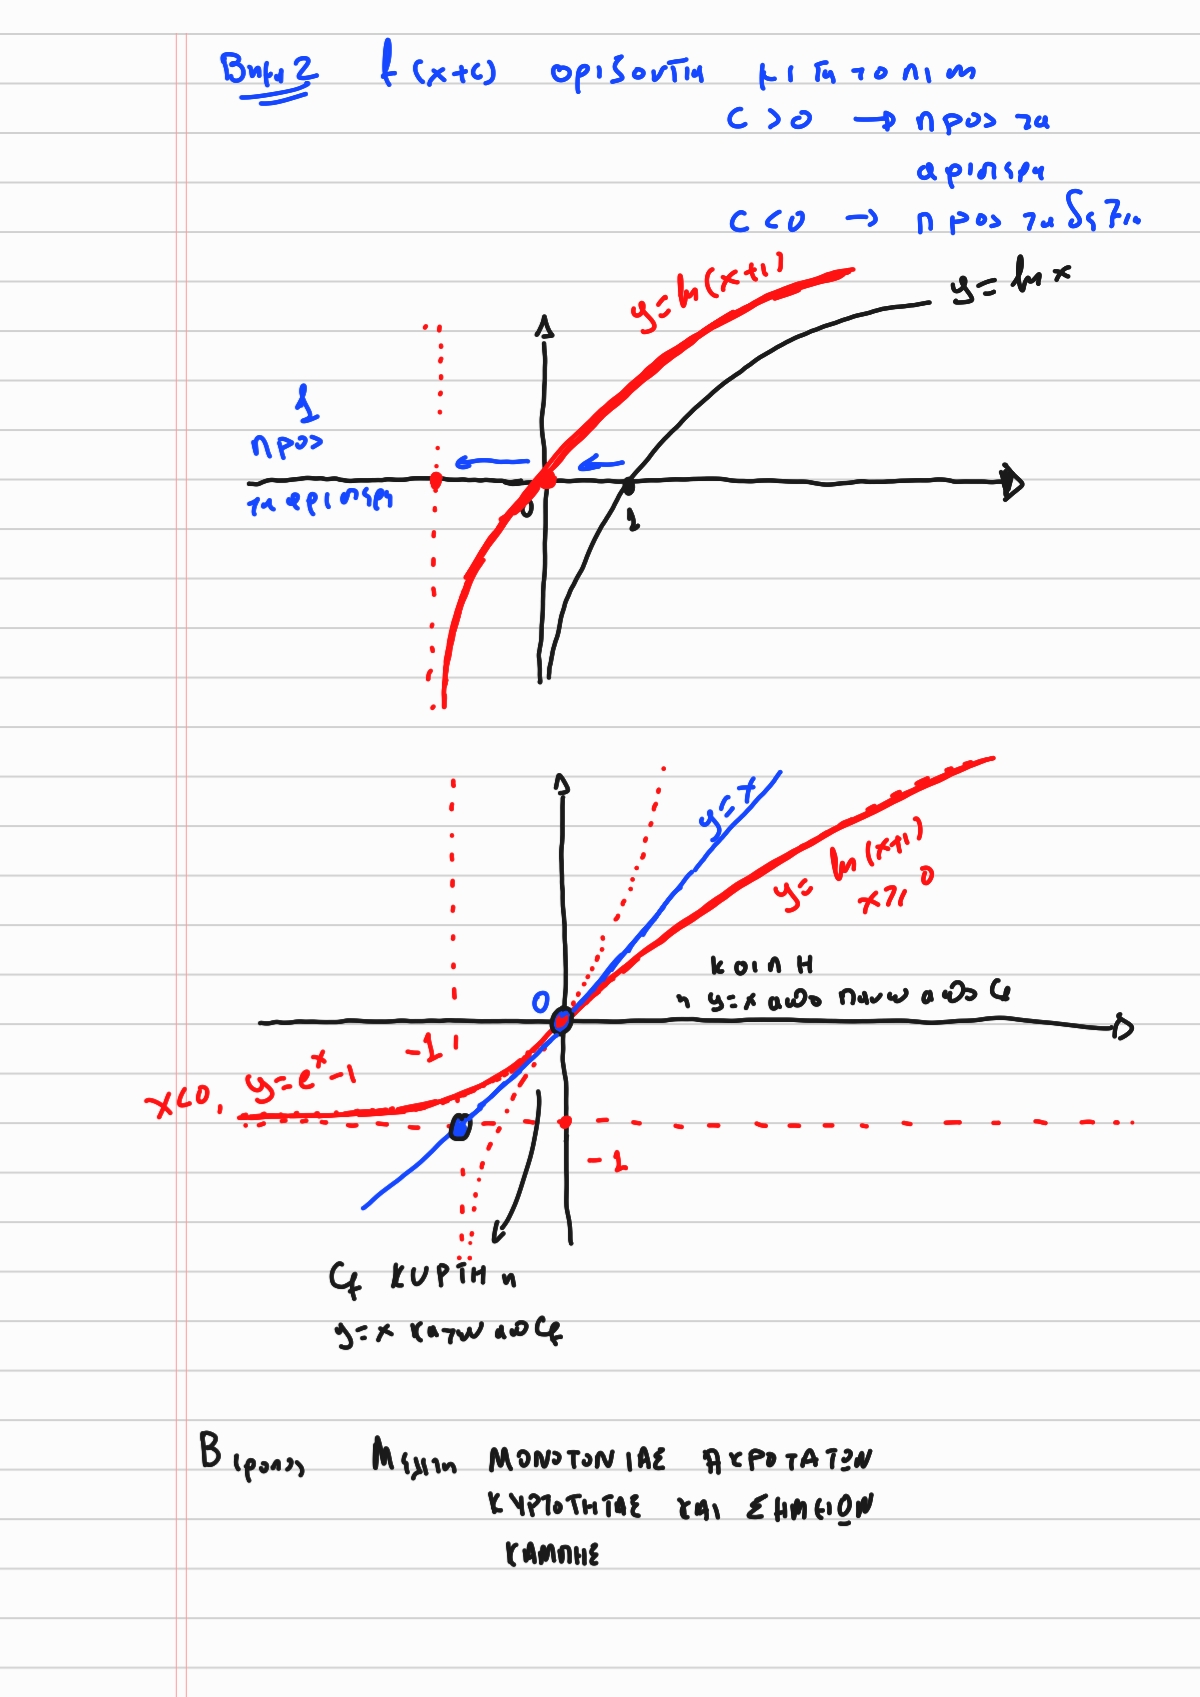 Βημα 2 f(x+c) οριζοντια μετατοπιση
c > 0 → προς τα
αριστερα
c < 0 → προς τα δεξια
y = ln(x+1)
y = ln x
1
προς
τα αριστερα
0
1
y = x
y = ln(x+1)
x ≥ 0
ΚΟΙΛΗ
η y=x απο πανω απο Cf
0
-1
x<0, y = e^x - 1
-1
Cf ΚΥΡΤΗ η
y=x κατω απο Cf
Β τροπος Μελετη ΜΟΝΟΤΟΝΙΑΣ ΑΚΡΟΤΑΤΩΝ
ΚΥΡΤΟΤΗΤΑΣ ΚΑΙ ΣΗΜΕΙΩΝ
ΚΑΜΠΗΣ